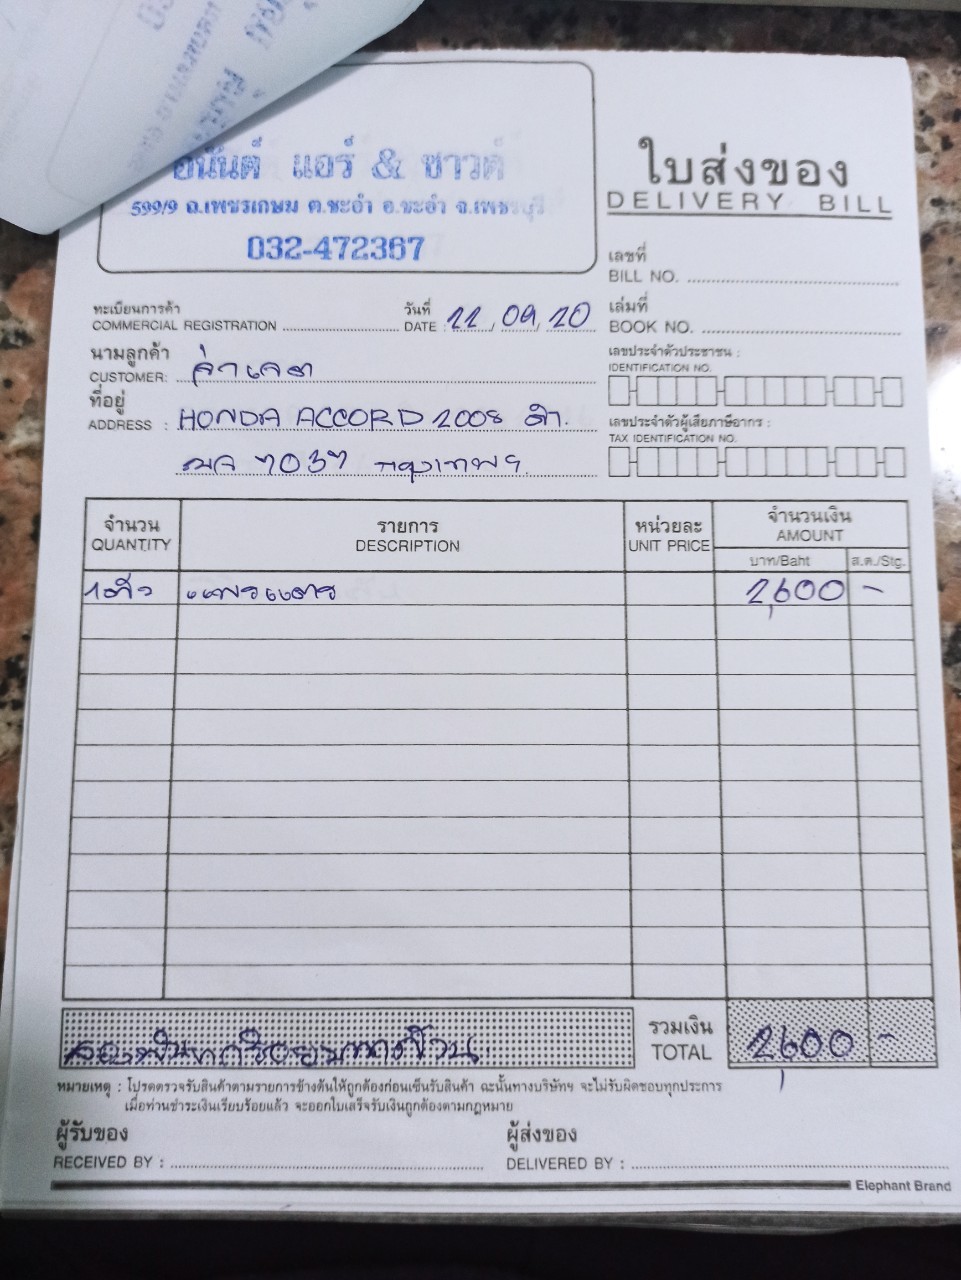 อนันต์ แอร์ & ซาวด์
599/9 ถ.เพชรเกษม ต.ชะอำ อ.ชะอำ จ.เพชรบุรี
032-472367
ใบส่งของ
DELIVERY BILL
เลขที่
BILL NO.
ทะเบียนการค้า
COMMERCIAL REGISTRATION
วันที่
DATE : 22, 09, 20
เล่มที่
BOOK NO.
นามลูกค้า
CUSTOMER:
ที่อยู่
ADDRESS : HONDA ACCORD 2008 ดำ.
7037 กรุงเทพฯ
เลขประจำตัวประชาชน :
IDENTIFICATION NO.
เลขประจำตัวผู้เสียภาษีอากร :
TAX IDENTIFICATION NO.
จำนวน รายการ หน่วยละ จำนวนเงิน
QUANTITY DESCRIPTION UNIT PRICE AMOUNT
บาท/Baht ส.ต./Stg.
1 ตัว 2,600 -
สองพันหกร้อยบาทถ้วน
รวมเงิน
TOTAL 2,600 -
หมายเหตุ : โปรดตรวจรับสินค้าตามรายการข้างต้นให้ถูกต้องก่อนเซ็นรับสินค้า ฉะนั้นทางบริษัทฯ จะไม่รับผิดชอบทุกประการ
เมื่อท่านชำระเงินเรียบร้อยแล้ว จะออกใบเสร็จรับเงินถูกต้องตามกฎหมาย
ผู้รับของ
RECEIVED BY :
ผู้ส่งของ
DELIVERED BY :
Elephant Brand